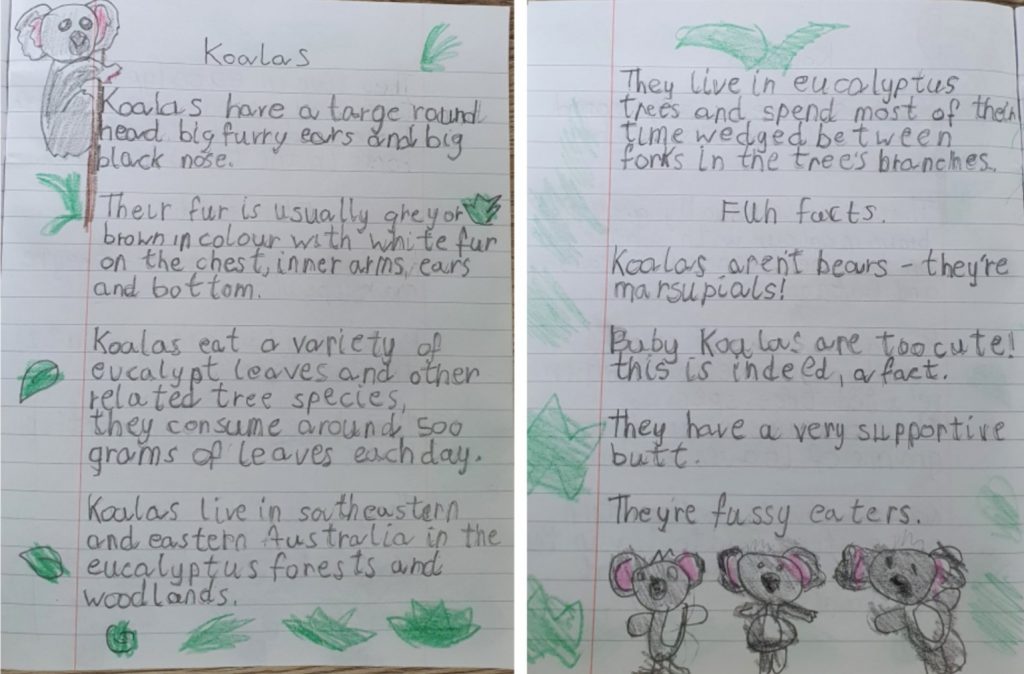 Koalas
Koalas have a large round
head big furry ears and big
black nose.
Their fur is usually grey or
brown in colour with white fur
on the chest, inner arms, ears
and bottom.
Koalas eat a variety of
eucalypt leaves and other
related tree species,
they consume around 500
grams of leaves each day.
Koalas live in southeastern
and eastern Australia in the
eucalyptus forests and
woodlands.
They live in eucalyptus
trees and spend most of their
time wedged between
forks in the tree's branches.
Fun facts.
Koalas aren't bears - they're
marsupials!
Baby Koalas are too cute!
this is indeed, a fact.
They have a very supportive
butt.
They're fussy eaters.